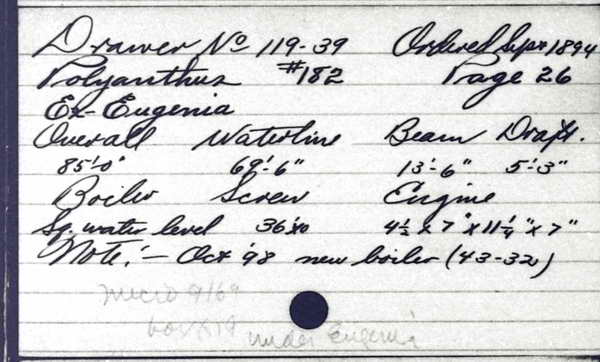 Drawer No 119-39 Ordered Sept 1894
Polyanthus #182 Page 26
Ex-Eugenia
Overall Waterline Beam Draft.
85'-0" 69'-6" 13'-6" 5'-3"
Boiler Screw Engine
Sq. water level 36" 4½ x 7" x 11¼" x 7"
Note:- Oct '98 new boiler (43-32)
micro 9/69
box 19 under Eugenia